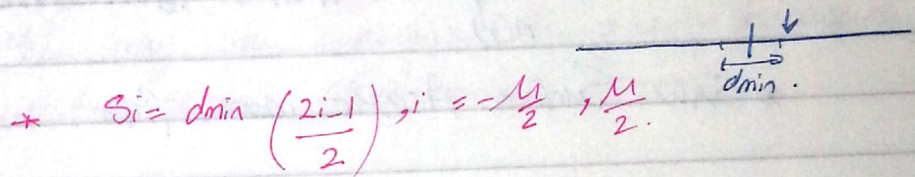 dmin.
* Si = dmin (2i-1/2), i = -M/2, M/2.